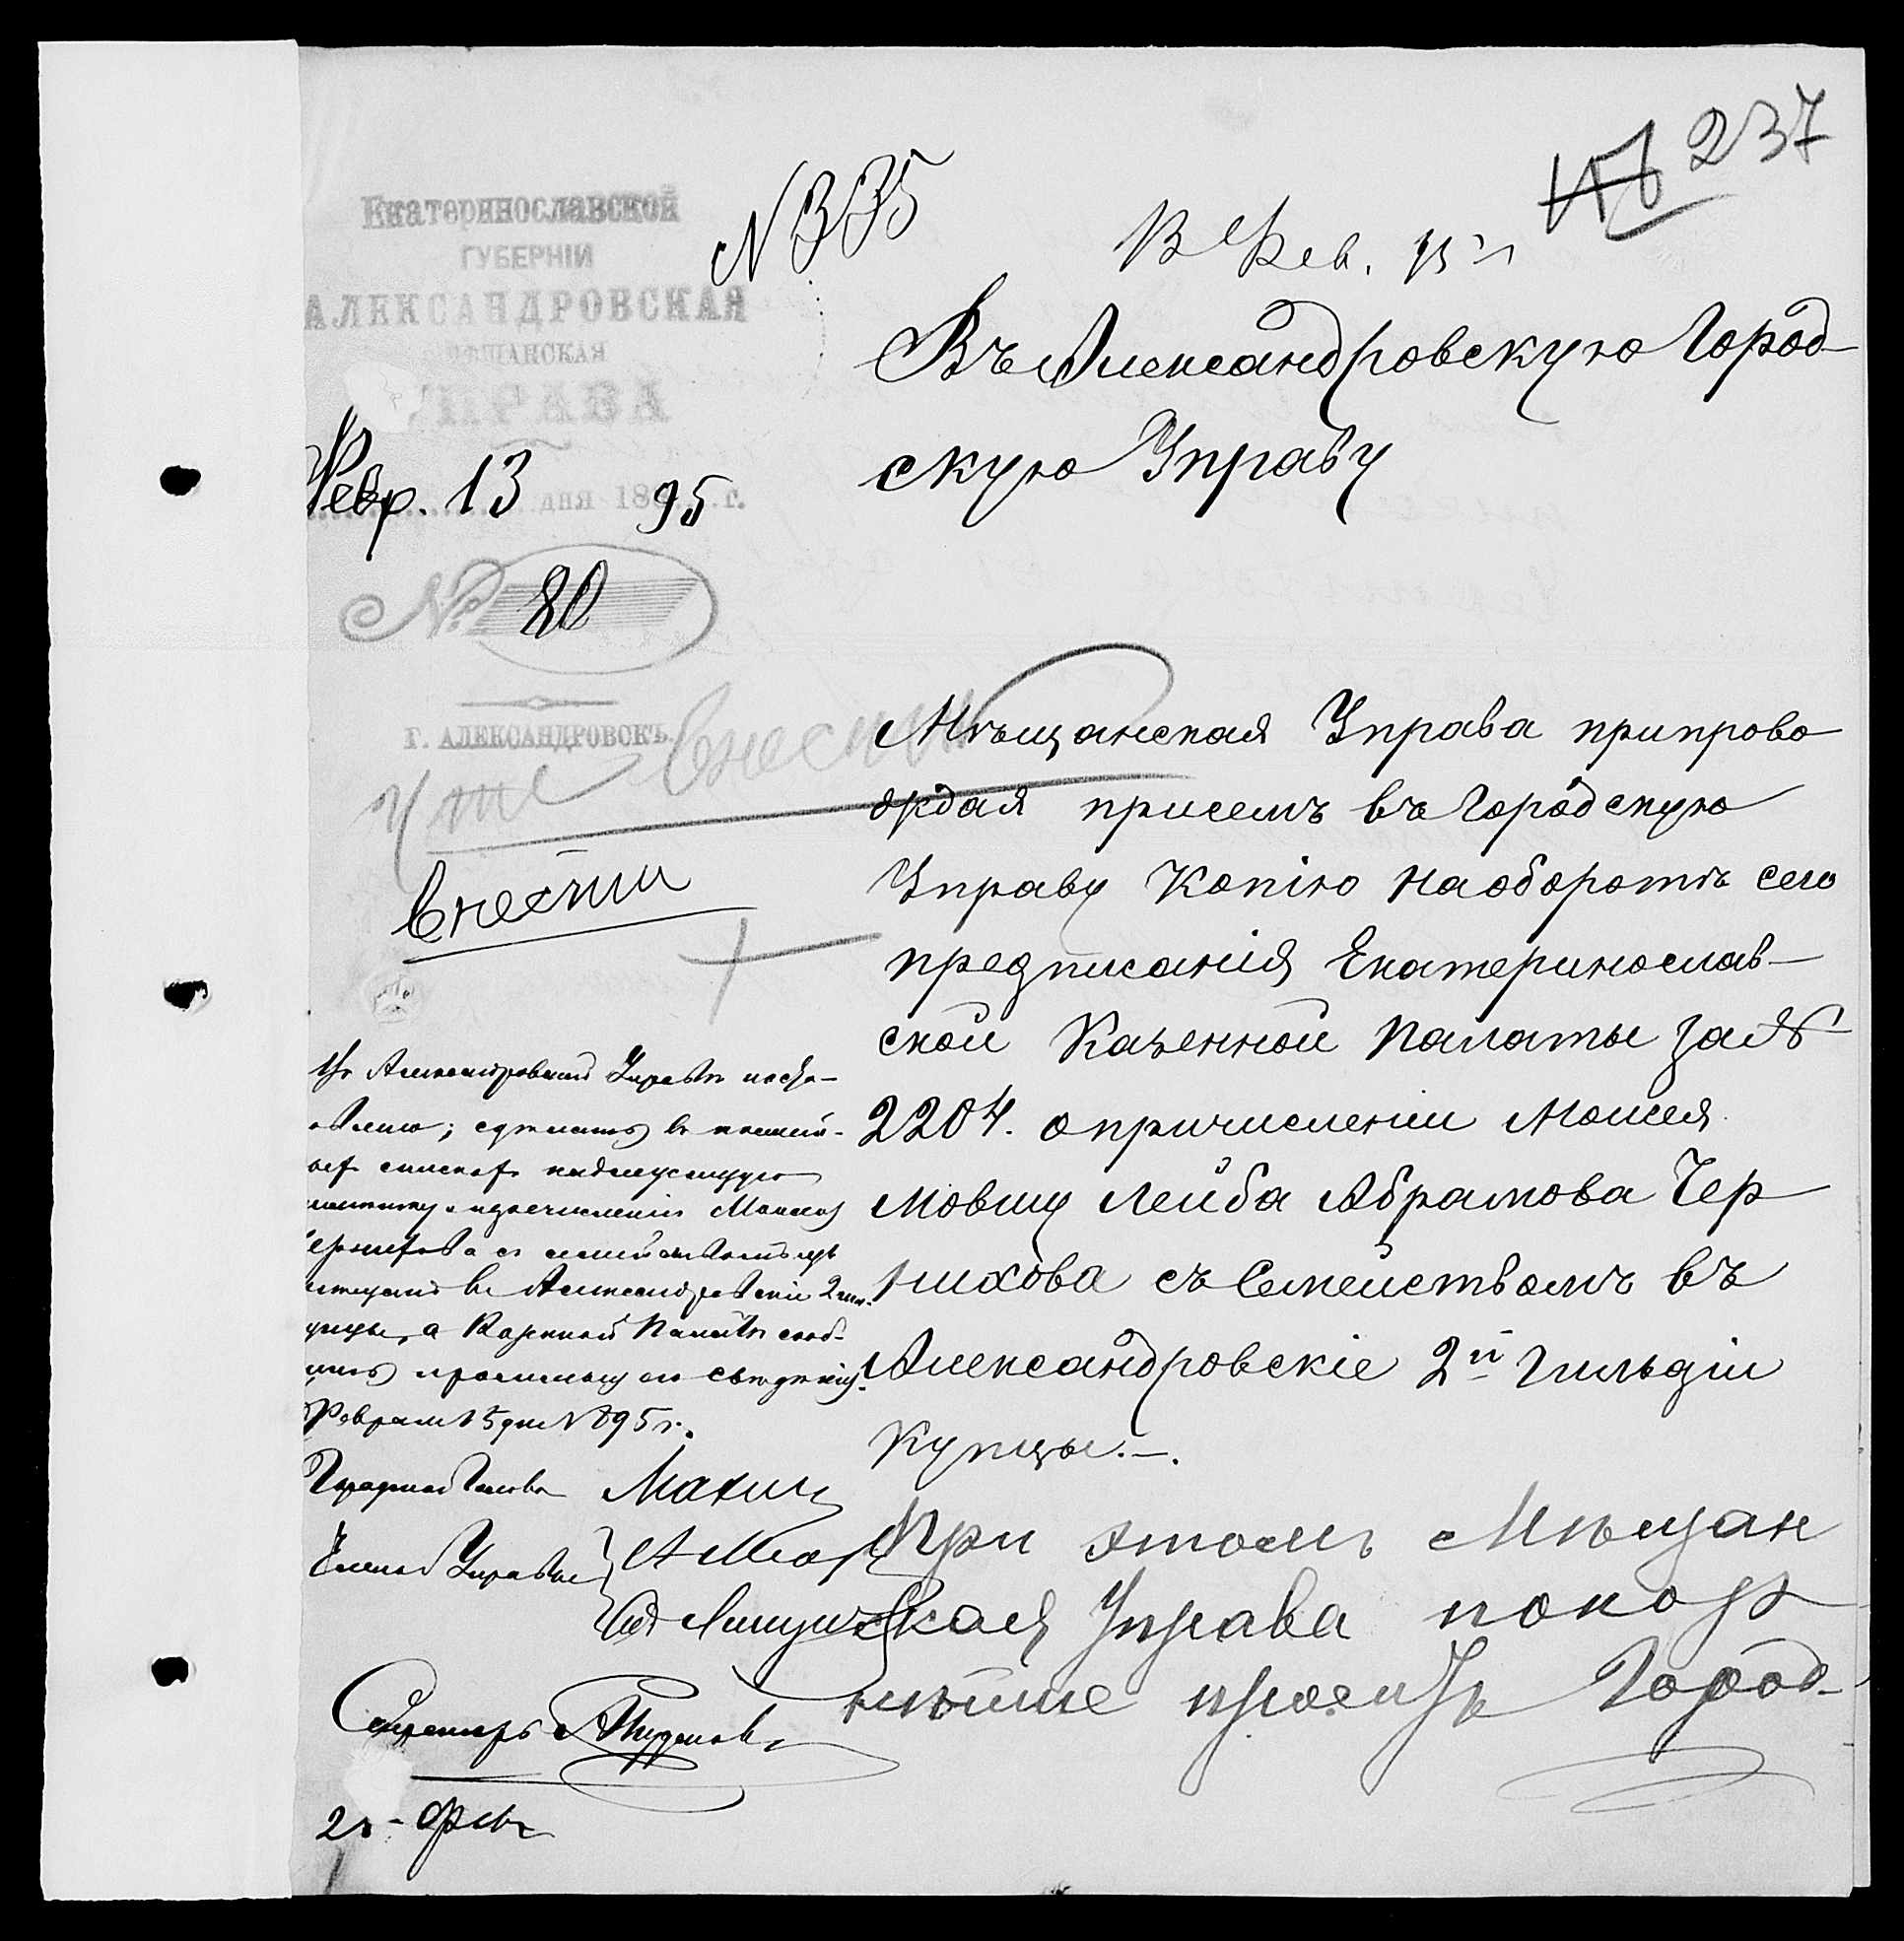 237
№ 335
13 Фев. 95 г
Екатеринославской
ГУБЕРНІИ
АЛЕКСАНДРОВСКАЯ
МѢЩАНСКАЯ
УПРАВА
Февр. 13 дня 1895 г.
№ 80
Г. АЛЕКСАНДРОВСКЪ.
внести
Внести
Въ Александровскую Город-
скую Управу
Мѣщанская Управа припрово
ждая присемъ въ Городскую
Управу Копію на оборотѣ сего
предписанія Екатеринослав-
ской Казенной Палаты за №
2204. о причисленіи Моисея
Мовшу Лейба Абрамова Чер
нихова съ Семействомъ въ
Александровскіе 2й Гильдіи
Купцы.-.
При этомъ Мѣщан
ская Управа покор
нѣйше проситъ Город-
Александровская Управа поста-
овляю; сдѣлать въ
спискѣ надлежущую
отмѣтку о причисленіи Моисея
ерникова съ семействомъ изъ
въ Александровскіе 2 гил.
купцы, а Казенной Палатѣ сооб-
Февраля 15 дня 1895 г.
Городской Голова Махин
Члены Управы
Секретарь